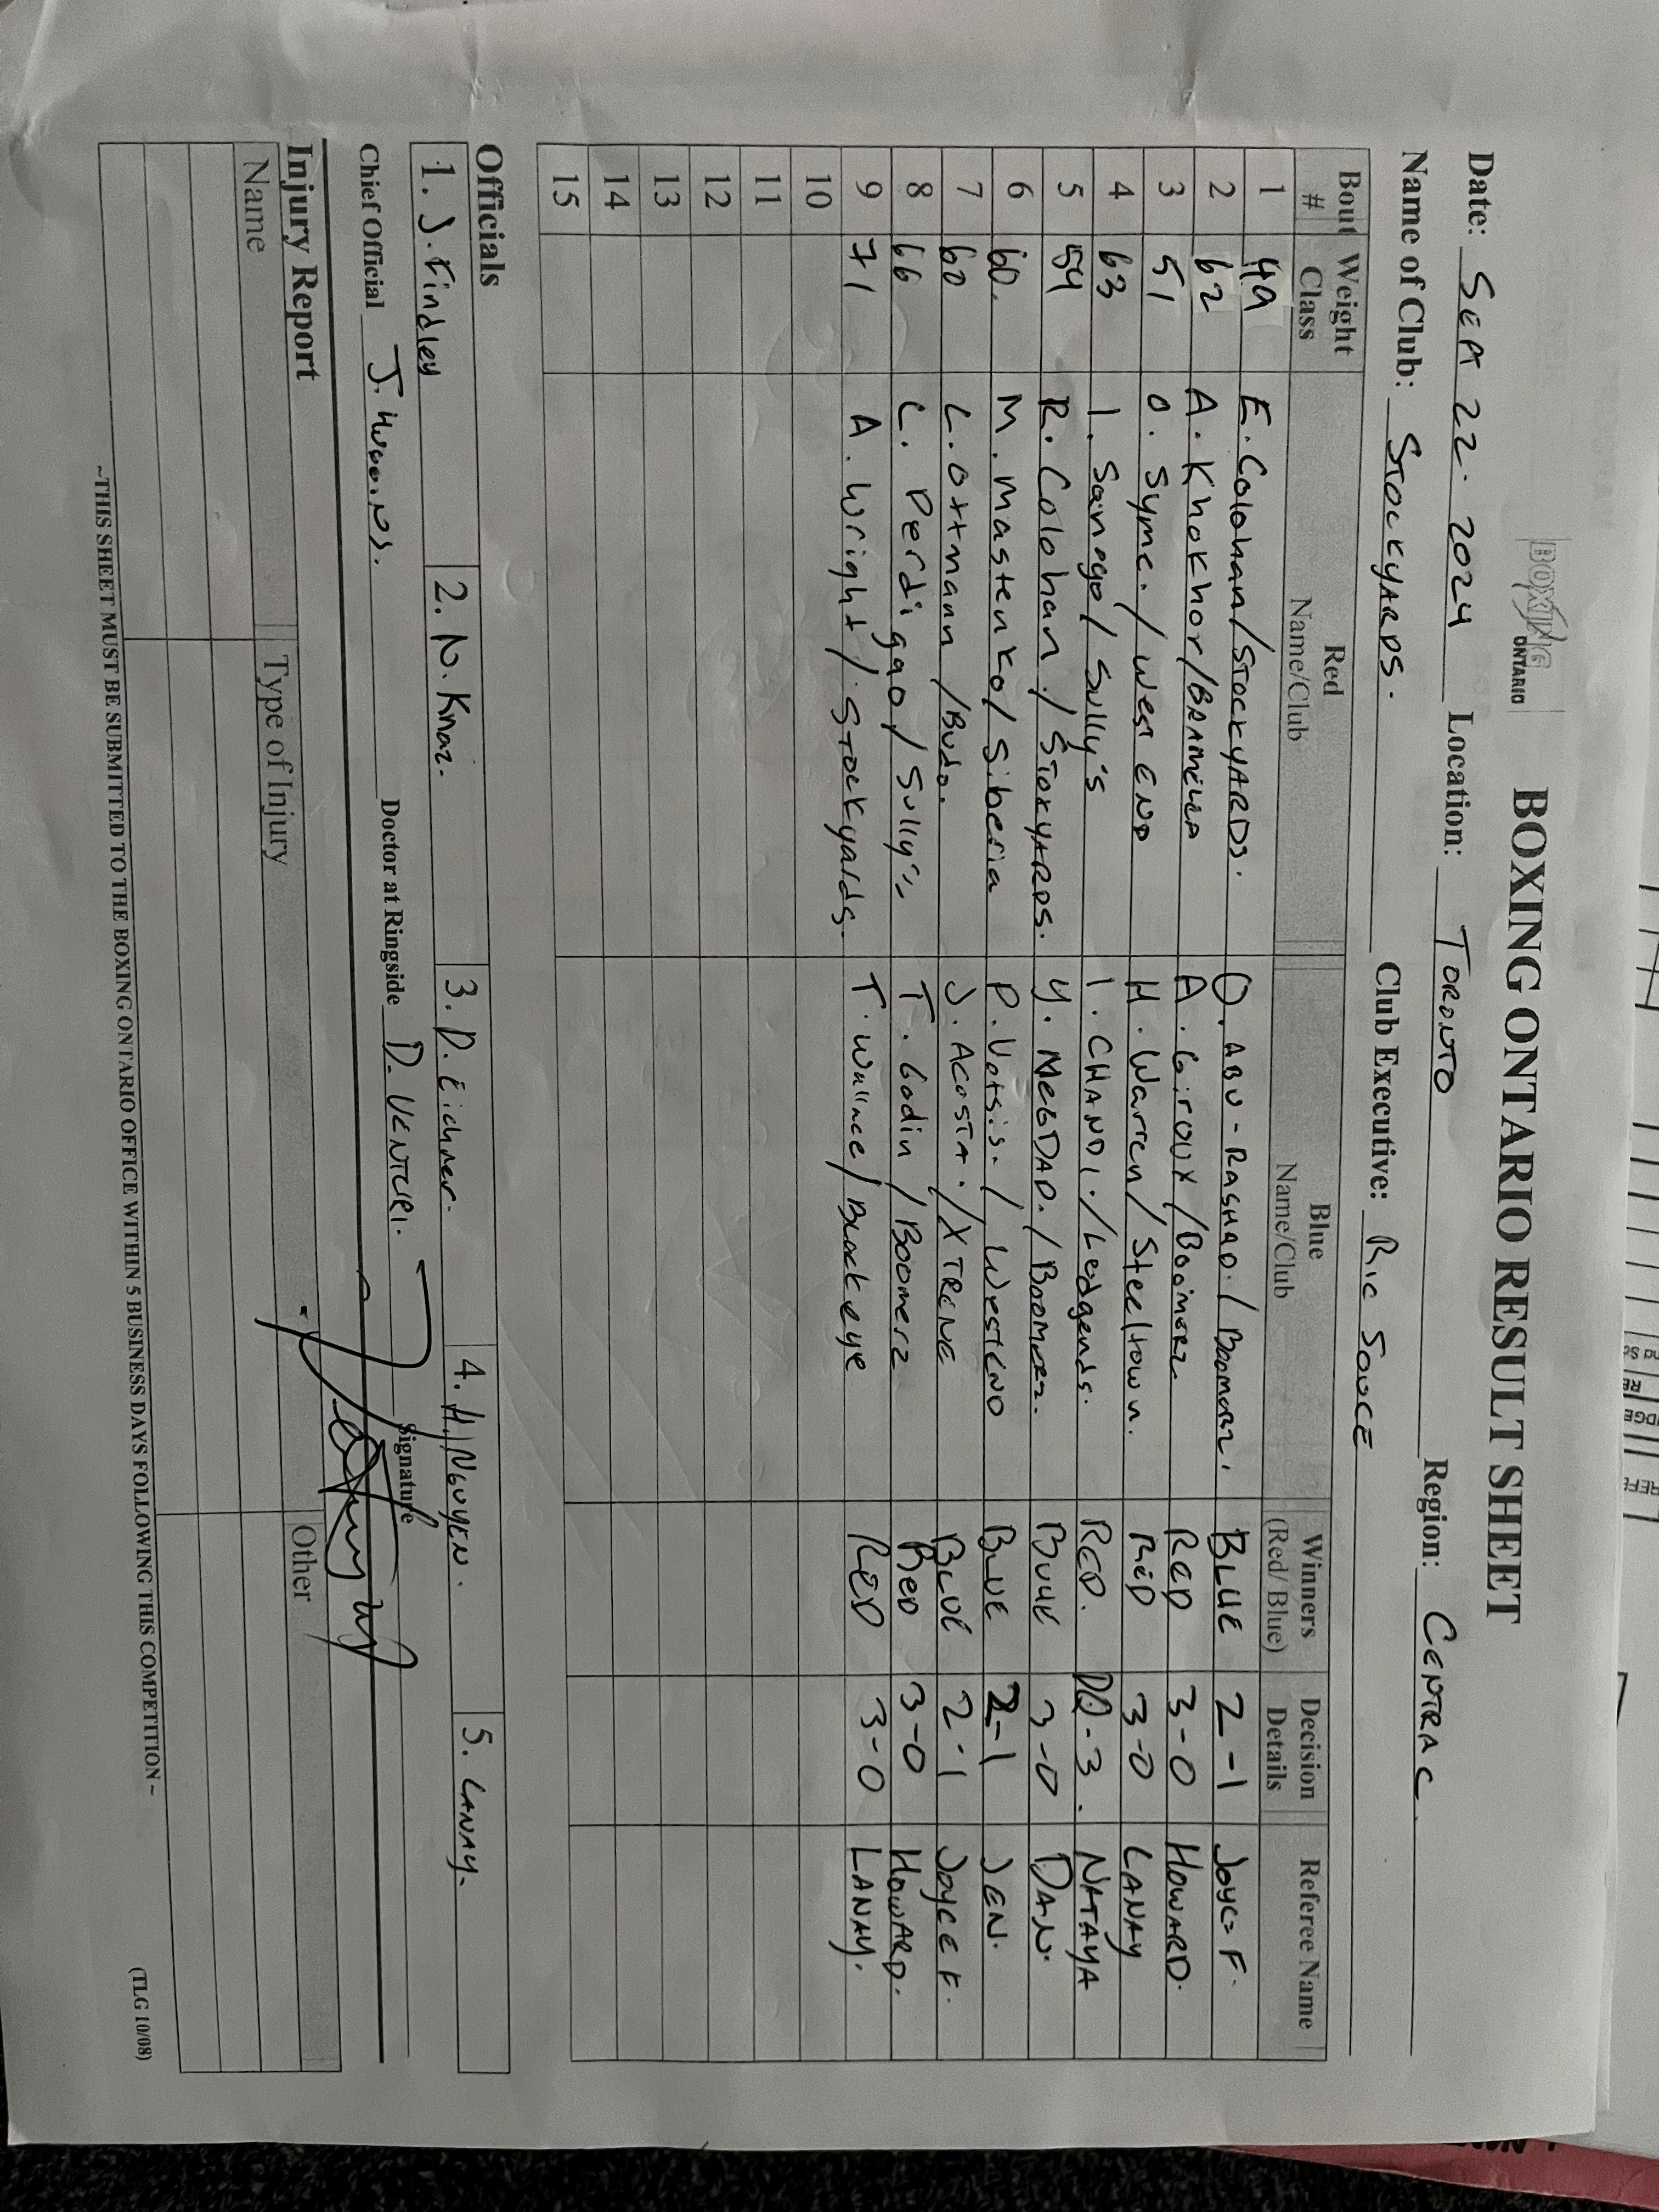 BOXING ONTARIO
BOXING ONTARIO RESULT SHEET
Date: SEP 22. 2024 Location: TORONTO Region: CENTRAL
Name of Club: STOCKYARDS. Club Executive: RIC SOUCE
Bout # Weight Class Red Name/Club Blue Name/Club Winners (Red/ Blue) Decision Details Referee Name
1 49 E. Colohan/STOCKYARDS. O. ABU-RASHAD. / BOOMERZ. BLUE 2-1 Joyce F.
2 62 A. Khokhor/BRAMELEA A. Giroux / BOOMERZ RED 3-0 HOWARD.
3 51 O. Syme. / WEST END H. Warren / Steeltown. RED 3-0 LANAY
4 63 I. Sanogo / Sully's I. CHANDI. / Ledgends. RED. DQ-3. NATAYA
5 54 R. Colohan / STOKYARDS. Y. MEGDAD. / BOOMERZ. BULE 3-0 DAN.
6 60. M. Mastenko / Siberia P. Votsis. / WESTEND BLUE 2-1 JEN.
7 60 L. Ottmann / Budo. J. ACOSTA. / XTREME BLUE 2-1 JOYCE F.
8 66 L. Perdigao / Sully's T. Godin / Boomerz RED 3-0 HOWARD.
9 71 A. Wright / STOCKYARDS. T. Wallace / Black eye RED 3-0 LANAY.
10
11
12
13
14
15
Officials
1. J. Findley 2. N. Knaz. 3. D. Eichner. 4. H. NGUYEN. 5. LANAY.
Chief Official J. Doctor at Ringside D. VENTURI. Signature
Injury Report
Name Type of Injury Other
~THIS SHEET MUST BE SUBMITTED TO THE BOXING ONTARIO OFFICE WITHIN 5 BUSINESS DAYS FOLLOWING THIS COMPETITION~
(TLG 10/08)